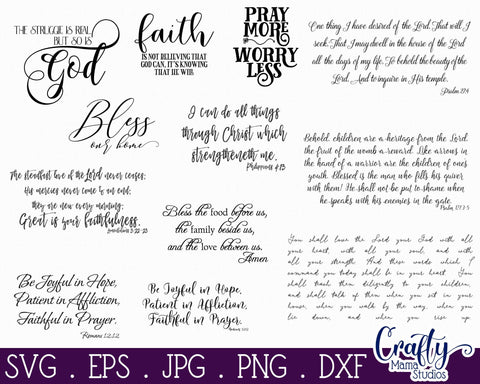 THE STRUGGLE IS REAL
BUT SO IS
God
faith
IS NOT BELIEVING THAT
GOD CAN, IT'S KNOWING
THAT HE WILL
PRAY
MORE
WORRY
LESS
One thing I have desired of the Lord, That will I
seek: That I may dwell in the house of the Lord
all the days of my life, To behold the beauty of the
Lord, And to inquire in His temple.
Psalm 27:4
Bless
our home
I can do all things
through Christ which
strengtheneth me.
Philippians 4:13
Behold, children are a heritage from the Lord,
the fruit of the womb a reward. Like arrows in
the hand of a warrior are the children of one's
youth. Blessed is the man who fills his quiver
with them! He shall not be put to shame when
he speaks with his enemies in the gate.
Psalm 127:3-5
The steadfast love of the Lord never ceases;
His mercies never come to an end;
they are new every morning;
Great is your faithfulness.
Lamentations 3:22-23
Bless the food before us,
the family beside us,
and the love between us.
Amen
You shall love the Lord your God with all
your heart, with all your soul, and with
all your strength. And these words which I
command you today shall be in your heart. You
shall teach them diligently to your children,
and shall talk of them when you sit in your
house, when you walk by the way, when you
lie down, and when you rise up
Be Joyful in Hope,
Patient in Affliction,
Faithful in Prayer.
Romans 12:12
Be Joyful in Hope,
Patient in Affliction,
Faithful in Prayer.
Romans 12:12
Crafty
Mama
Studios
SVG . EPS . JPG . PNG . DXF